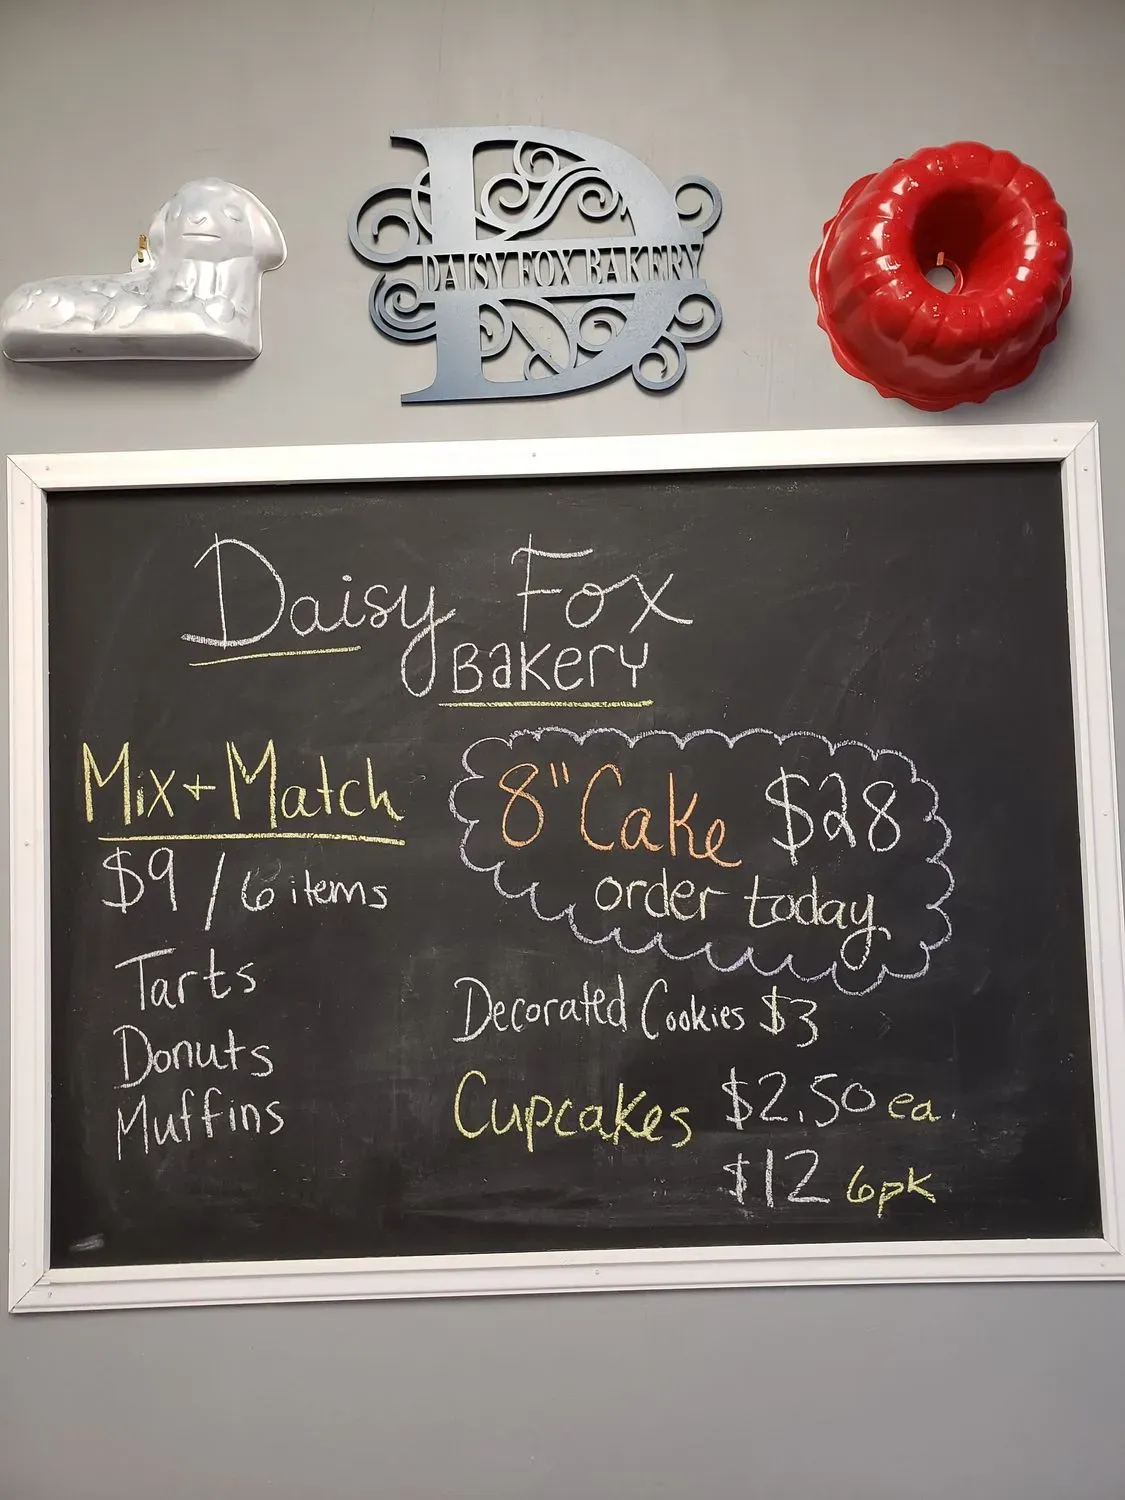 DAISY FOX BAKERY
Daisy Fox
Bakery
Mix + Match
$9 / 6 items
Tarts
Donuts
Muffins
8" Cake $28
order today
Decorated Cookies $3
Cupcakes $2.50 ea.
$12 6pk